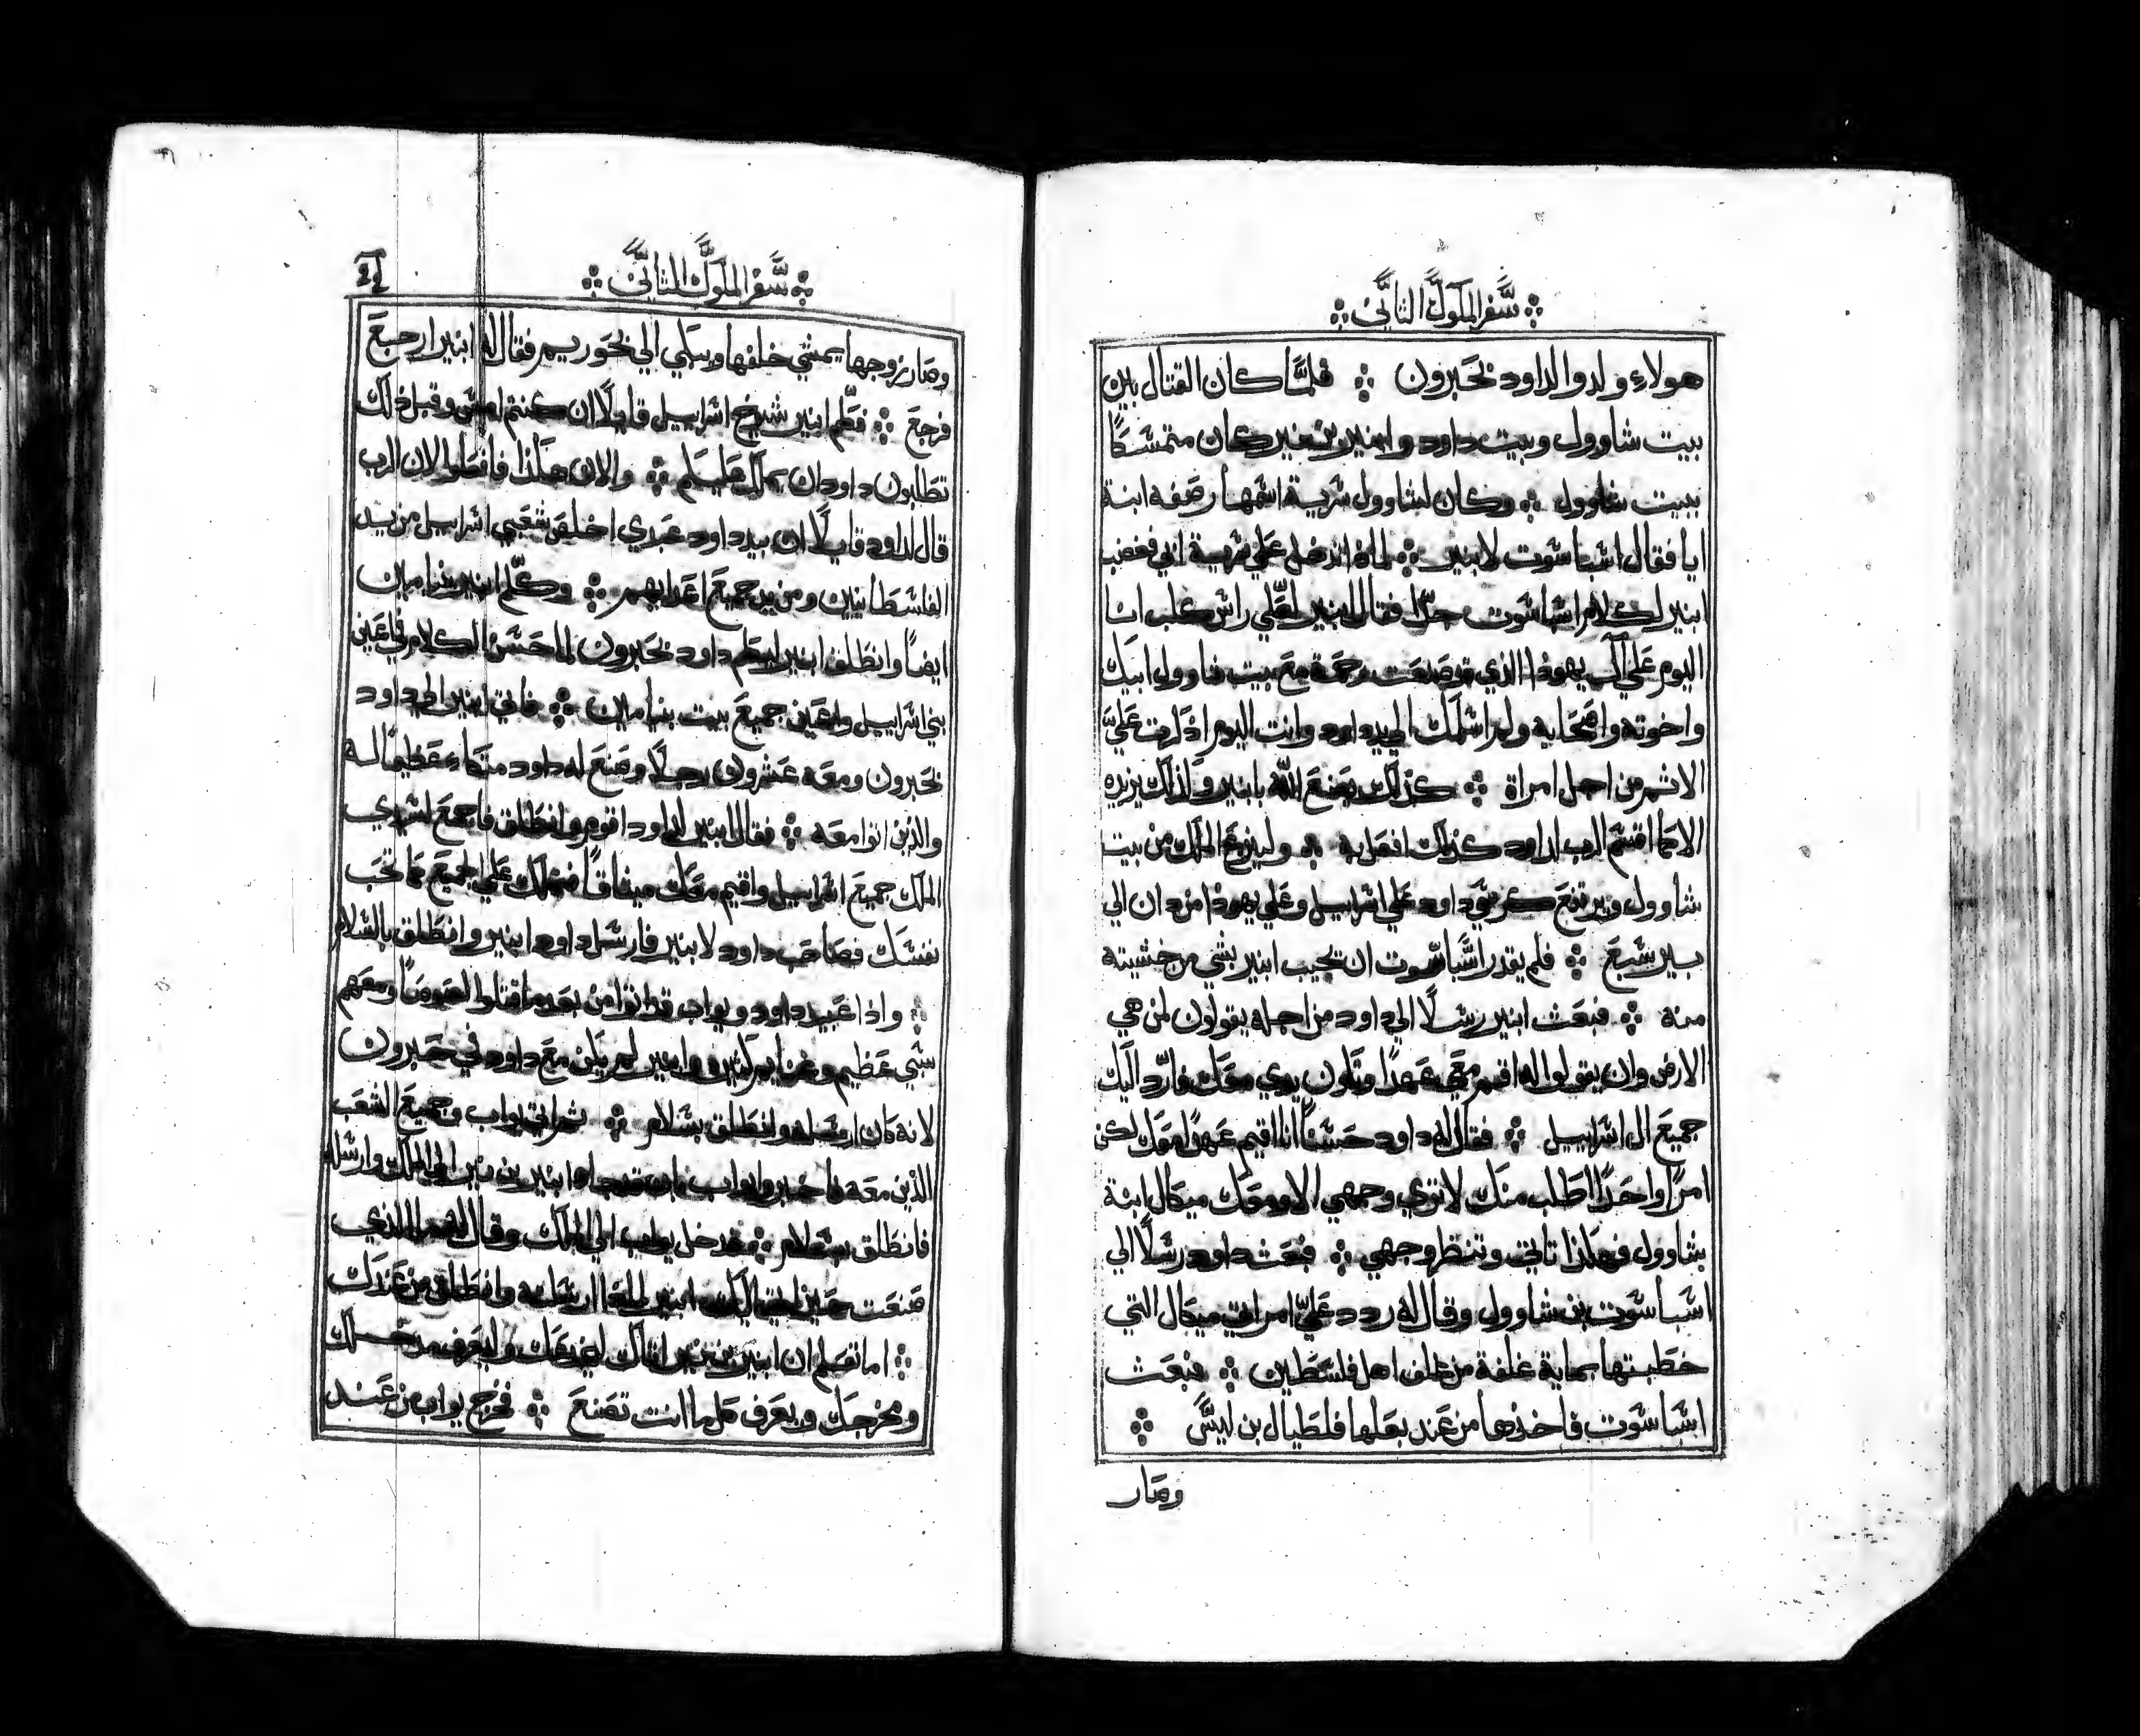 سفر الملوك التاني
هولاء ولدوا لداود بحبرون ۞ فلما كان القتال بين
بيت شاوول وبيت داود وابنير بن نير كان متمسكًا
ببيت شاوول ۞ وكان لشاوول سرية اسمها رصفه ابنة
ايا فقال اشباسوت لابنير ۞ لماذا تدخل علي سرية ابي فغضب
ابنير لكلام اشباسوت جدًا فقال ابنير لعلي راس كلب انا
اليوم علي ال يهوذا الذي قد صنعت رحمة مع بيت شاوول ابيك
واخوته واصحابه ولم اسلمك الي يد داود وانت اليوم اذكرت عليّ
الاثم من اجل امراة ۞ كذلك يصنع الله بابنير وكذلك يزيده
الا كما اقسم الرب لداود كذلك افعل به ۞ ولينزع الملك من بيت
شاوول ويرتفع كرسي داود علي اسراييل وعلي يهوذا من دان الي
بيرسبع ۞ فلم يقدر اشباسوت ان يجيب ابنير بشي من خشيته
منه ۞ فبعث ابنير رسلًا الي داود من اجله يقولون لمن هي
الارض وان يقولوا له اقسم معي عهدًا وتكون يدي معك فارد اليك
جميع ال اسراييل ۞ فقال له داود حسنًا انا اقيم عهدًا معك لكن
امرًا واحدًا اطلب منك لا تري وجهي الا ومعك ميكال ابنة
شاوول فهكذا تاتي وتنظر وجهي ۞ فبعث داود رسلًا الي
اشباسوت بن شاوول وقال له ردد عليّ امراتي ميكال التي
خطبتها بماية غلفة من غلف اهل فلسطين ۞ فبعث
اشباسوت فاخذها من عند بعلها فلطيال بن ليس ۞
وصار
سفر الملوك التاني
وصار زوجها يمشي خلفها ويبكي الي بحوريم فقال له ابنير ارجع
فرجع ۞ فكلم ابنير شيوخ اسراييل قايلًا ان كنتم امس وقبل ذلك
تطلبون داود ان يملك عليكم ۞ والان هكذا فافعلوا لان الرب
قال لداود قايلًا ان بيد داود عبدي اخلص شعبي اسراييل من يد
الفلسطانيين ومن يد جميع اعدايهم ۞ وكلم ابنير بنيامين
ايضًا وانطلق ابنير ليكلم داود بحبرون لما حسن الكلام في اعين
بني اسراييل واعين جميع بيت بنيامين ۞ فاتي ابنير الي داود
بحبرون ومعه عشرون رجلًا وصنع له داود متكاء عظيمًا له
والذين اتوا معه ۞ فقال ابنير لداود اقوم وانطلق فاجمع لسيدي
الملك جميع اسراييل واقيم معك ميثاقًا فتملك علي الجميع كما تحب
نفسك فصاحب داود لابنير فارسل داود ابنير وانطلق بالسلام
۞ واذا عبيد داود ويواب قد اتوا من بعد ما قتلوا لصوصًا ومعهم
شي عظيم وابنير لم يكن مع داود في حبرون
لانه كان ارسله وانطلق بسلام ۞ ثم اتي يواب وجميع الشعب
الذين معه فاخبروا يواب بان قد جاء ابنير بن نير الي الملك وارسله
فانطلق بسلام ۞ فدخل يواب الي الملك وقال له ما الذي
صنعت حين اتي اليك ابنير لماذا ارسلته وانطلق من عندك
۞ اما تعلم ان ابنير بن نير اتاك ليخدعك وليعرف مدخلك
ومخرجك ويعرف كل ما انت تصنع ۞ فخرج يواب من عند